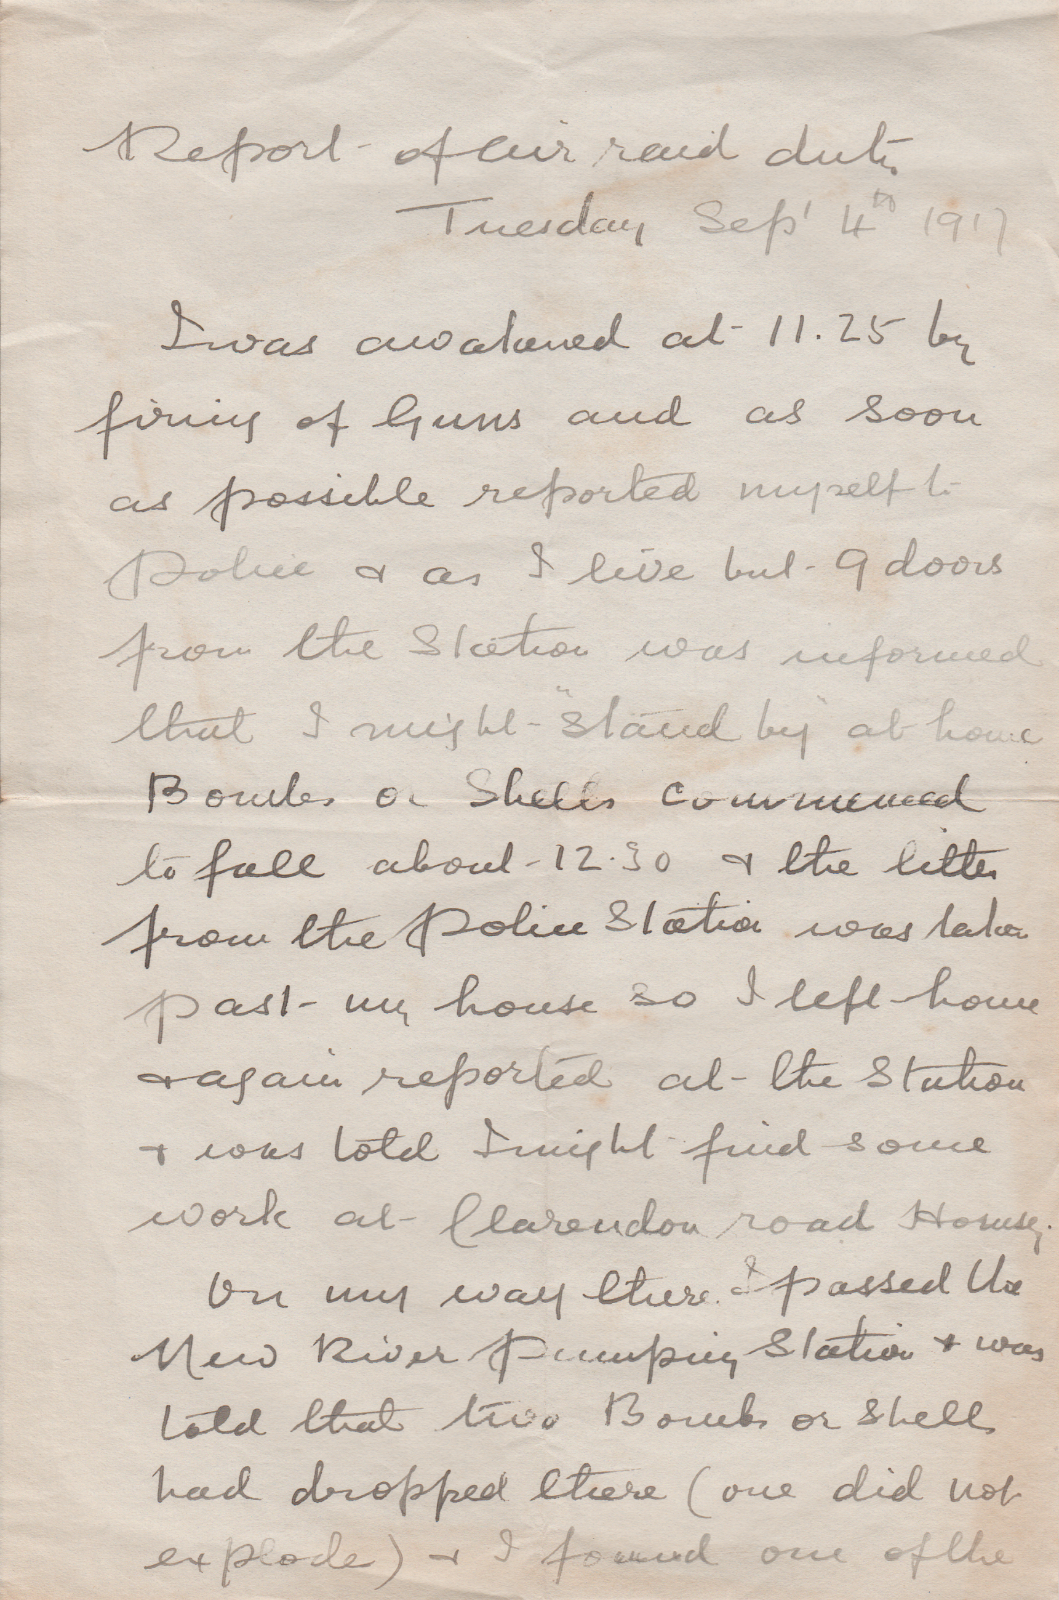 Report of air raid duty
Tuesday Sep' 4th 1917
I was awakened at 11.25 by
firing of Guns and as soon
as possible reported myself to
Police & as I live but 9 doors
from the Station was informed
that I might "Stand by" at home
Bombs or Shells commenced
to fall about 12.30 & the litter
from the Police Station was taken
past my house so I left home
& again reported at the Station
& was told I might find some
work at Clarendon road Hornsey.
On my way there I passed the
New River Pumping Station & was
told that two Bombs or Shells
had dropped there (one did not
explode) & I found one of the